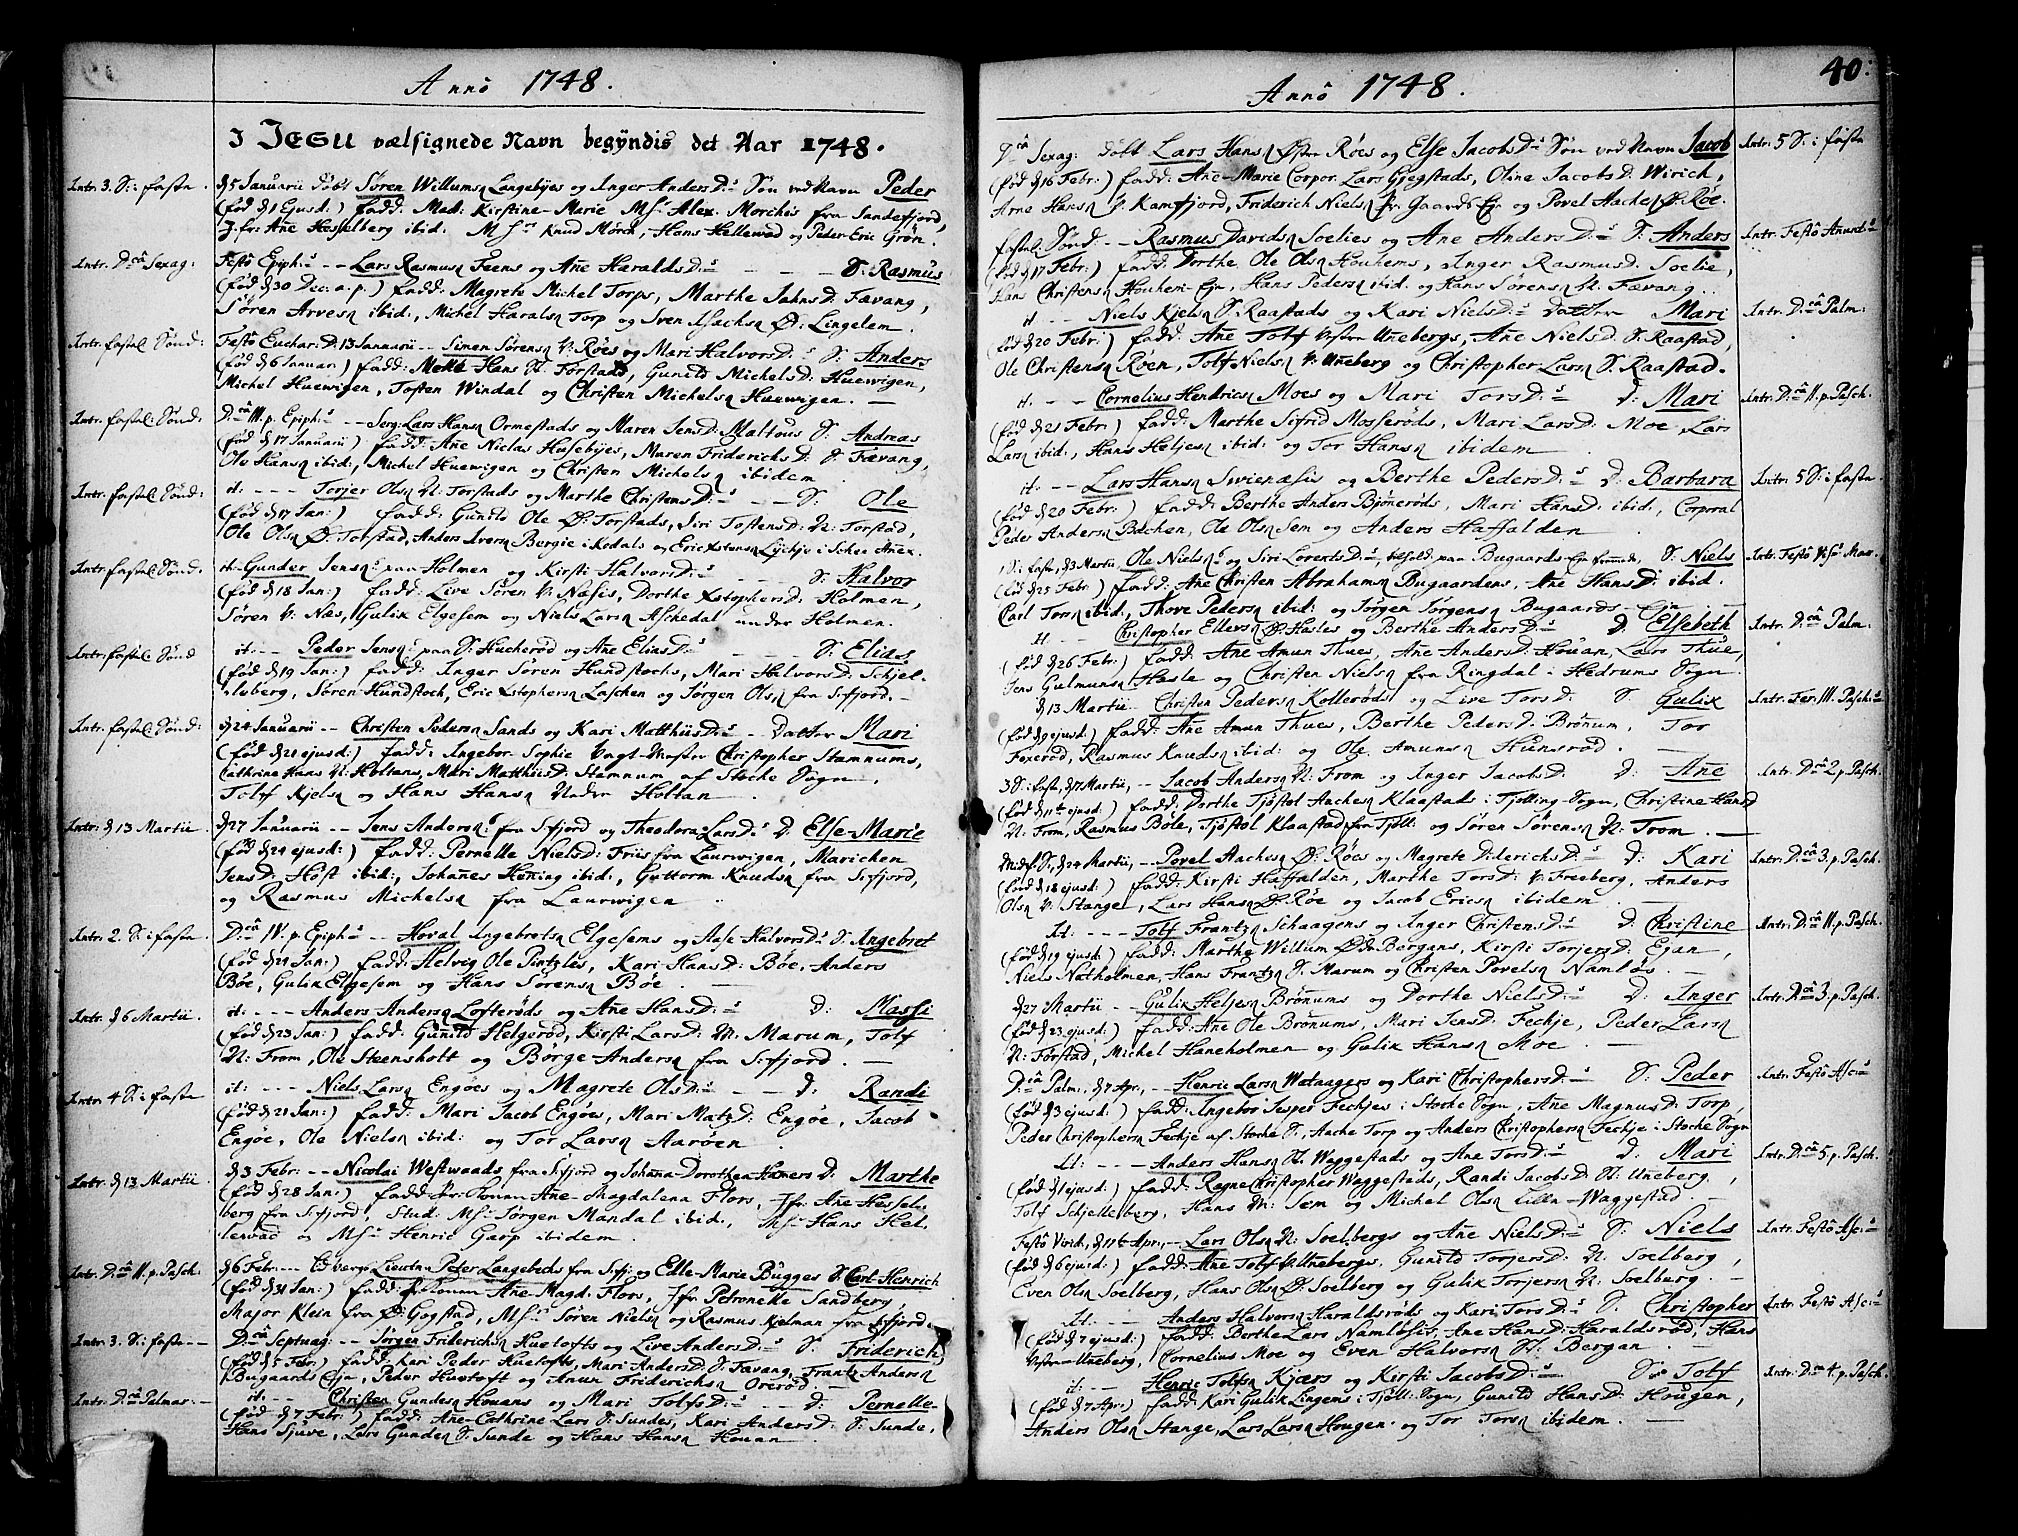 Annô 1748.
I JESU vælsignede Navn begÿndis det Aar 1748.
Intr. 3. S: i faste. d 5 Januarii döbt Søren Willumsn Langebÿes og Inger AndersD:s Søn ved Navn Peder
(fød d 1 Ejusd:) fadd: Mad: Kirstine-Marie Msr Alex. Morchis fra Sandefjord,
Jfr: Ane Hesselberg ibid: Msr Knud Moren, Hans Hellewad og Peder-Eric Grøn.
Intr. Dca Sexag: Festô Epiph:s -- Lars Rasmusn Feens og Añe HaraldsD:s - - - S: Rasmus
(fød d 30 Dec: a.p.) fadd: Magrete Michel Torps, Marthe JahnsD: Fævang,
Søren Arvesn ibid:, Michel Haralsn Torp og Sven Isachsn Ø: Lingelem.
Intr. fastel: Sønd: Festô Euchar: D: 13 Januarii -- Simen Sørensn V: Røes og Mari HalvorsD:s S: Anders
(fød d 6 Januar) fadd: Mette Hans N: Torstad, Gunild MichelsD: Huewigen,
Michel Huewigen, Tosten Windal og Christen Michelsn Huewigen. —
Intr. fastel: Sønd: Dca III. p. Epiph:s -- Serg: Lars Hansn Ormestads og Maren JensD: Maltous S: Andreas
(fød d 17 Januarii) fadd: Añe Niclas Husebÿes, Maren FriderichsD: S: Fævang,
Ole Hansn ibid:, Michel Huewigen og Christen Michelsn ibidem.
Intr. fastel: Sønd: it: --- Torjer Olsn N: Torstads og Marthe ChristensD:s -- S: Ole
(fød d 17 Jan:) fadd: Gunild Ole Ø: Torstads, Siri TostensD: N: Torstad,
Ole Olsn Ø: Torstad, Anders Iversn Bergie i Kodals og Eric Xstensn Lÿchje i Schee Añex.
Intr. fastel: Sønd: it: Gunder Jensns paa Holmen og Kirsti HalvorsD:s - - - S: Halvor
(fød d 18 Jan:) fadd: Live Søren V: Næsis, Dorthe XstophersD: Holmen,
Søren V: Næs, Gulix Elgesem og Niels Larsn Aschedal under Holmen.
Intr. fastel: Sønd it: --- Peder Jensns paa S: Hucherød og Ane EliasD:s - S: Elias
(fød d 19 Jan:) fadd: Inger Søren Hundstochs, Mari HalvorsD: Schjel-
leberg, Søren Hundstoch, Eric Xstophersn Laschen og Jørgen Olsn fra S:fjord. —
Intr. fastel: Sønd: d 24 Januarii -- Christen Pedersn Sands og Kari MatthiisD:s -- Datter Mari
(fød d 21 ejusd:) fadd: Ingebor Sophie Vagt-Mester Christopher Stamnums,
Cathrine Hans N: Holtans, Mari MatthiisD: Stamnum af Stoche Sogn,
Tolf Kjelsn og Hans Hansn Neder Holtan.
Intr: d 13 Martii. d 27 Januarii -- Jens Andersns fra S:fjord og Theodora LarsD:s D: Else-Marie
(fød d 24 ejusd:) fadd: Pernelle NielsD: Friis fra Laurwigen, Marichen
JensD: Høst ibid:, Johannes Heñing ibid:, Guttorm Knudsn fra S:fjord,
og Rasmus Michelsn fra Laurwigen.
Intr. 2. S: i faste. Dca IV. p. Epiph:s -- Hoval Ingebretsn Elgesems og Aase HalvorsD:s S: Ingebret
(fød d 21 Jan:) fadd: Helvig Ole Pintzles, Kari HansD: Bøe, Anders
Bøe, Gulix Elgesem og Hans Sørensn Bøe. —
Intr: d 6 Martii. it: --- Anders Andersn Lofterøds og Añe HansD:s D: Massi
(fød d 23 Jan:) fadd: Gunild Helgerød, Kirsti LarsD: M: Marum, Tolf
N: From, Ole Steensholt og Børge Andersn fra S:fjord. —
Intr. 4 S: i faste it: --- Niels Larsn Engöes og Magrete OlsD:s -- D: Randi
(fød d 21 Jan:) fadd: Mari Jacob Engöes, Mari MatzD: Engöe, Jacob
Engöe, Ole Nielsn ibid: og Tor Larsn Aaröen.
Intr. d 13 Martii d 3 Febr: -- Nicolai Westwaads fra S:fjord og Johana-Dorothea Hañers D: Marthe
(fød d 28 Jan:) fadd: Fr: Roman Añe-Magdalena Flors, Jfr: Ane Hessel-
berg fra S:fjord, Stud: Msr Jørgen Mandal ibid:, Msr Hans Hel-
lewad og Msr Henric Garp ibidem.
Intr. Dca II. p. Pasch: d 6 Febr: -- Lieutn: Peter Langebechs fra S:fj: og Edle-Marie Bugges S: Carl-Henrich
(fød d 31 Jan:) fadd: Fr: Roman Ane-Magd: Flors, Jfr: Petronelle Sandberg,
Major Klein fra Ø: Gogstad, Msr Søren Nielsn og Rasmus Kjelman fra S:fjord.
Intr. 3. S: i faste -- Dca Septuag: -- Jørgen Friderichsn Huetofts og Live AndersD:s S: Friderich
(fød d 5 Febr:) fadd: Kari Peder Huetofts, Mari AndersD: S: Fævang, Frantz Andersn
Bugaards Eje, Peder Huetoft og Amun Friderichsn Orerød. —
Intr. Dca Palmar. — it: --- Christen Gundersn Houans og Mari TolfsD:s --- D: Pernelle
(fød d 7 Febr:) fadd: Ane-Cathrine Lars S: Sundes, Kari AndersD: S: Sunde,
Hans Tjuve, Lars Gundersn S: Sunde og Hans Hansn Houan.
Annô 1748. 40:
Dca Sexag: döbt Lars Hansn Øster Røes og Else JacobsD:s Søn ved Navn Jacob Intr. 5 S: i faste
(fød d 16 Febr:) fadd: Ane-Marie Corpor. Lars Gjegstads, Oline JacobsD: Wirich,
Arne Hansn V: Kamfjord, Friderich Nielsn Pr: Gaards Eje og Povel Aachesn Ø: Røe.
fastel: Sønd: -- Rasmus Davidsn Soelies og Ane AndersD:s S: Anders Intr. Festô Anunt:s
(fød d 17 Febr:) fadd: Dorthe Ole Olsn Houhems, Inger RasmusD: Soelie,
Hans Christensn Houhem-Eje, Hans Pedersn ibid: og Hans Sørensn N: Fævang.
it: -- Niels Kjelsn S: Raastads og Kari NielsD:s Datter Mari Intr. Dca Palm:
(fød d 20 Febr:) fadd: Ane Tolf Vester Unebergs, Ane NielsD: S: Raastad,
Ole Christensn Røen, Tolf Nielsn V: Uneberg og Christopher Larsn S: Raastad.
it. -- Cornelius Hendricsn Moes og Mari TorsD:s D: Mari Intr. Dca II. p. Pasch.
(fød d 21 Febr:) fadd: Marthe Sifrid Mosserøds, Mari LarsD: Moe, Lars
Larsn ibid:, Hans Heljesn ibid: og Tor Hansn ibidem.
it: -- Lars Hansn Svienæsis og Berthe PedersD:s D: Barbara Intr. 5 S: i faste
(fød d 20 Febr:) fadd: Berthe Anders Bjönerøds, Mari HansD: ibid:, Corporal
Peder Andersn Bachen, Ole Olsn Sem og Anders Haffalden
1 S: i faste, d 3 Martii, Ole Nielsns og Siri LorentsD:s, S: Niels Intr. Festô Visô Mar.
(fød d 25 Febr:) fadd: Ane Christen Abrahamsn Bugaardens, Ane HansD: ibid.
Carl Torsn ibid:, Thove Pedersn ibid: og Jørgen Jørgensn Bugaards-Eje
it -- Christopher Ellefsn Ø: Hasles og Berthe AndersD:s D: Elsebeth Intr. Dca Palm.
(fød d 26 Febr:) fadd: Ane Amun Thues, Añe AndersD: Houan, Lars Thue,
Jens Gulmunsn Hasle og Christen Nielsn fra Ringdal i Hedrums Sogn.
d 13 Martii -- Christen Pedersn Kollerøds og Live TorsD: S: Gulix Intr. Fer: III. Pasch:s
(fød d 9 ejusd:) fadd: Añe Amun Thues, Berthe PedersD: Brønum, Tor
Foxerød, Rasmus Knudsn ibid: og Ole Amunsn Hunsrød. —
3 S: i faste, d 17 Martii, -- Jacob Andersn N: From og Inger JacobsD: D: Añe Intr. Dca 2. p. Pasch.
(fød d 11te ejusd:) fadd: Dorthe Tjöstol Aachesn Klaastads i Tjölling-Sogn, Christine HansD
N: From, Rasmus Böle, Tjöstol Klaastad fra Tjöll: og Søren Sørensn N: From. —
Midf: S:, d 24 Martii, -- Povel Aachesn Ø: Røes og Magrete DiderichsD:s D: Kari Intr. Dca 3. p. Pasch.
(fød d 18 ejusd:) fadd: Kirsti Haffalden, Marthe TorsD: V: Freeberg, Anders
Olsn V: Stange, Lars Hansn Ø: Røe og Jacob Ericsn ibidem. —
it: --- Tolf Frantzn Schaagens og Inger ChristensD:s D: Christine Intr. Dca II. p. Pasch.
(fød d 19 ejusd:) fadd: Marthe Willum Øde Bergans, Kirsti TorjersD: Egan,
Niels Natholmen, Hans Frantzn S: Marum og Christen Povelsn Namløs. —
d 27 Martii -- Gulix Heljesn Brønums og Dorthe NielsD:s D: Inger Intr. Dca 3. p. Pasch.
(fød d 23 ejusd:) fadd: Ane Ole Brønums, Mari JensD: Fechje, Peder Larsn
N: Torstad, Michel Haneholmen og Gulix Hansn Moe. —
Dca Palm:, d 7 Apr:, -- Henric Larsn Wataaggers og Kari ChristophersD:s S: Peder Intr. Festô Asc:s
(fød d 3 ejusd:) fadd: Ingebor Jesper Fechjes i Stoche Sogn, Ane MagnusD: Torp,
Peder Christophersn Fechje af Stoche S:, Aache Torp og Anders Christophersn Fechje i Stoche Sogn
it: --- Anders Hansn N: Waggestads og Ane TorsD:s D: Mari Intr. Dca 5. p. Pasch.
(fød d 1 ejusd:) fadd: Ragne Christopher Waggestads, Randi JacobsD: N: Uneberg,
Tolf Schjelleberg, Hans M: Sem og Michel Olsn Lille-Waggestad. —
Festô Virid:, d 11te Apr:, -- Lars Olsn N: Soelbergs og Ane NielsD:s S: Niels Intr. Festô Asc:s
(fød d 6 ejusd:) fadd: Ane Tolf V: Unebergs, Gunild TorjersD: N: Soelberg,
Even Olsn Soelberg, Hans Olsn Ø: Soelberg og Gulix Torjersn N: Soelberg. —
it: --- Anders Halvorsn Haraldsrøds og Kari TorsD:s S: Christopher Intr. Festô Asc:s
(fød d 7 ejusd:) fadd: Berthe Lars Namløsis, Ane HansD: Haraldsrød, Hans
Vester-Uneberg, Cornelius Moe og Even Halvorsn N: Bergan. —
it: --- Henric Tolfsn Kjærs og Kirsti JacobsD:s S: Tolf Intr. Dca 4. p. Pasch.
(fød d 7 Apr:) fadd: Kari Gulix Lingems i Tjöll: Sogn, Gunild HansD: Hougen,
Anders Olsn Stange, Lars Larsn Hougen og Tor Torsn ibidem. —